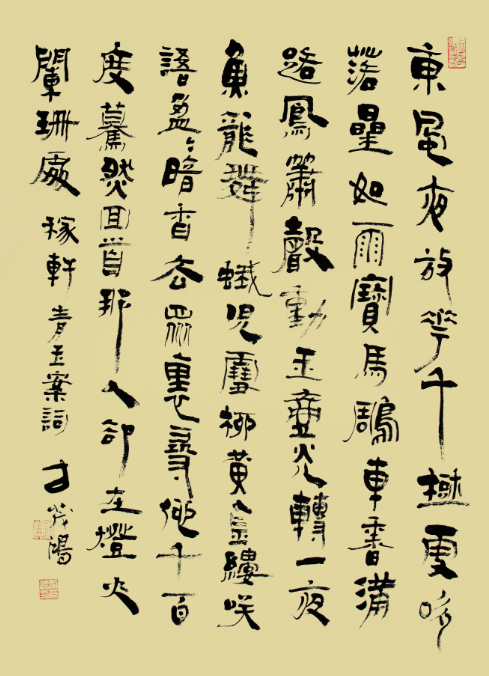 東風夜放花千樹更吹
落星如雨寶馬鵰車香滿
路鳳簫聲動玉壺光轉一夜
魚龍舞蛾兒雪柳黃金縷咲
語盈〻暗香去眾裏尋他千百
度驀然回首那人卻在燈火
闌珊處 稼軒青玉案詞